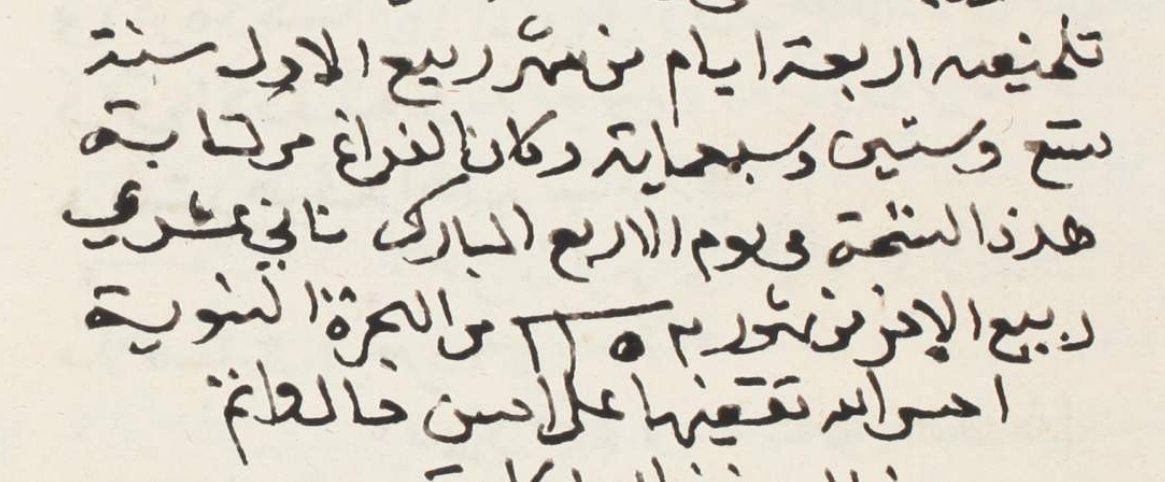 تلمنيعه اربعة ايام من شهر ربيع الاول سنة
تسع وستين وسبعماية وكان الفراغ من كتابة
هذه النسخة فى يوم الاربع المبارك ثاني عشري
ربيع الاخر من شهور سنة ١١٥ من الهجرة النبوية
احسن الله تقضيها على احسن حال واتم